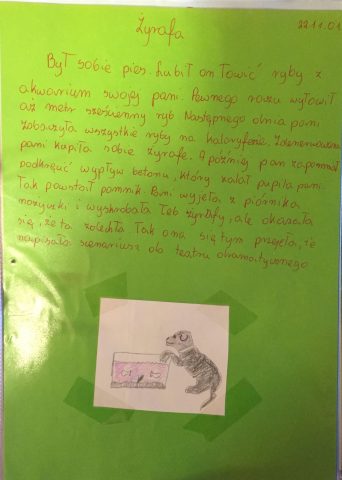 Żyrafa
22.11.01
Był sobie pies. Lubił on łowić ryby z
akwarium swojej pani. Pewnego razu wyłowił
aż metr sześcienny ryb. Następnego dnia pani
zobaczyła wszystkie ryby na kaloryferze. Zdenerwowana
pani kupiła sobie żyrafę. A później pan zapomniał
podkręcić wypływ betonu, który zalał pupila pani.
Tak powstał pomnik. Pani wyjęła z piórnika
nożyczki i wyskrobała łeb żyrafy, ale okazało
się, że ta zdechła. Tak ona się tym przejęła, że
napisała scenariusz do teatru dramatycznego